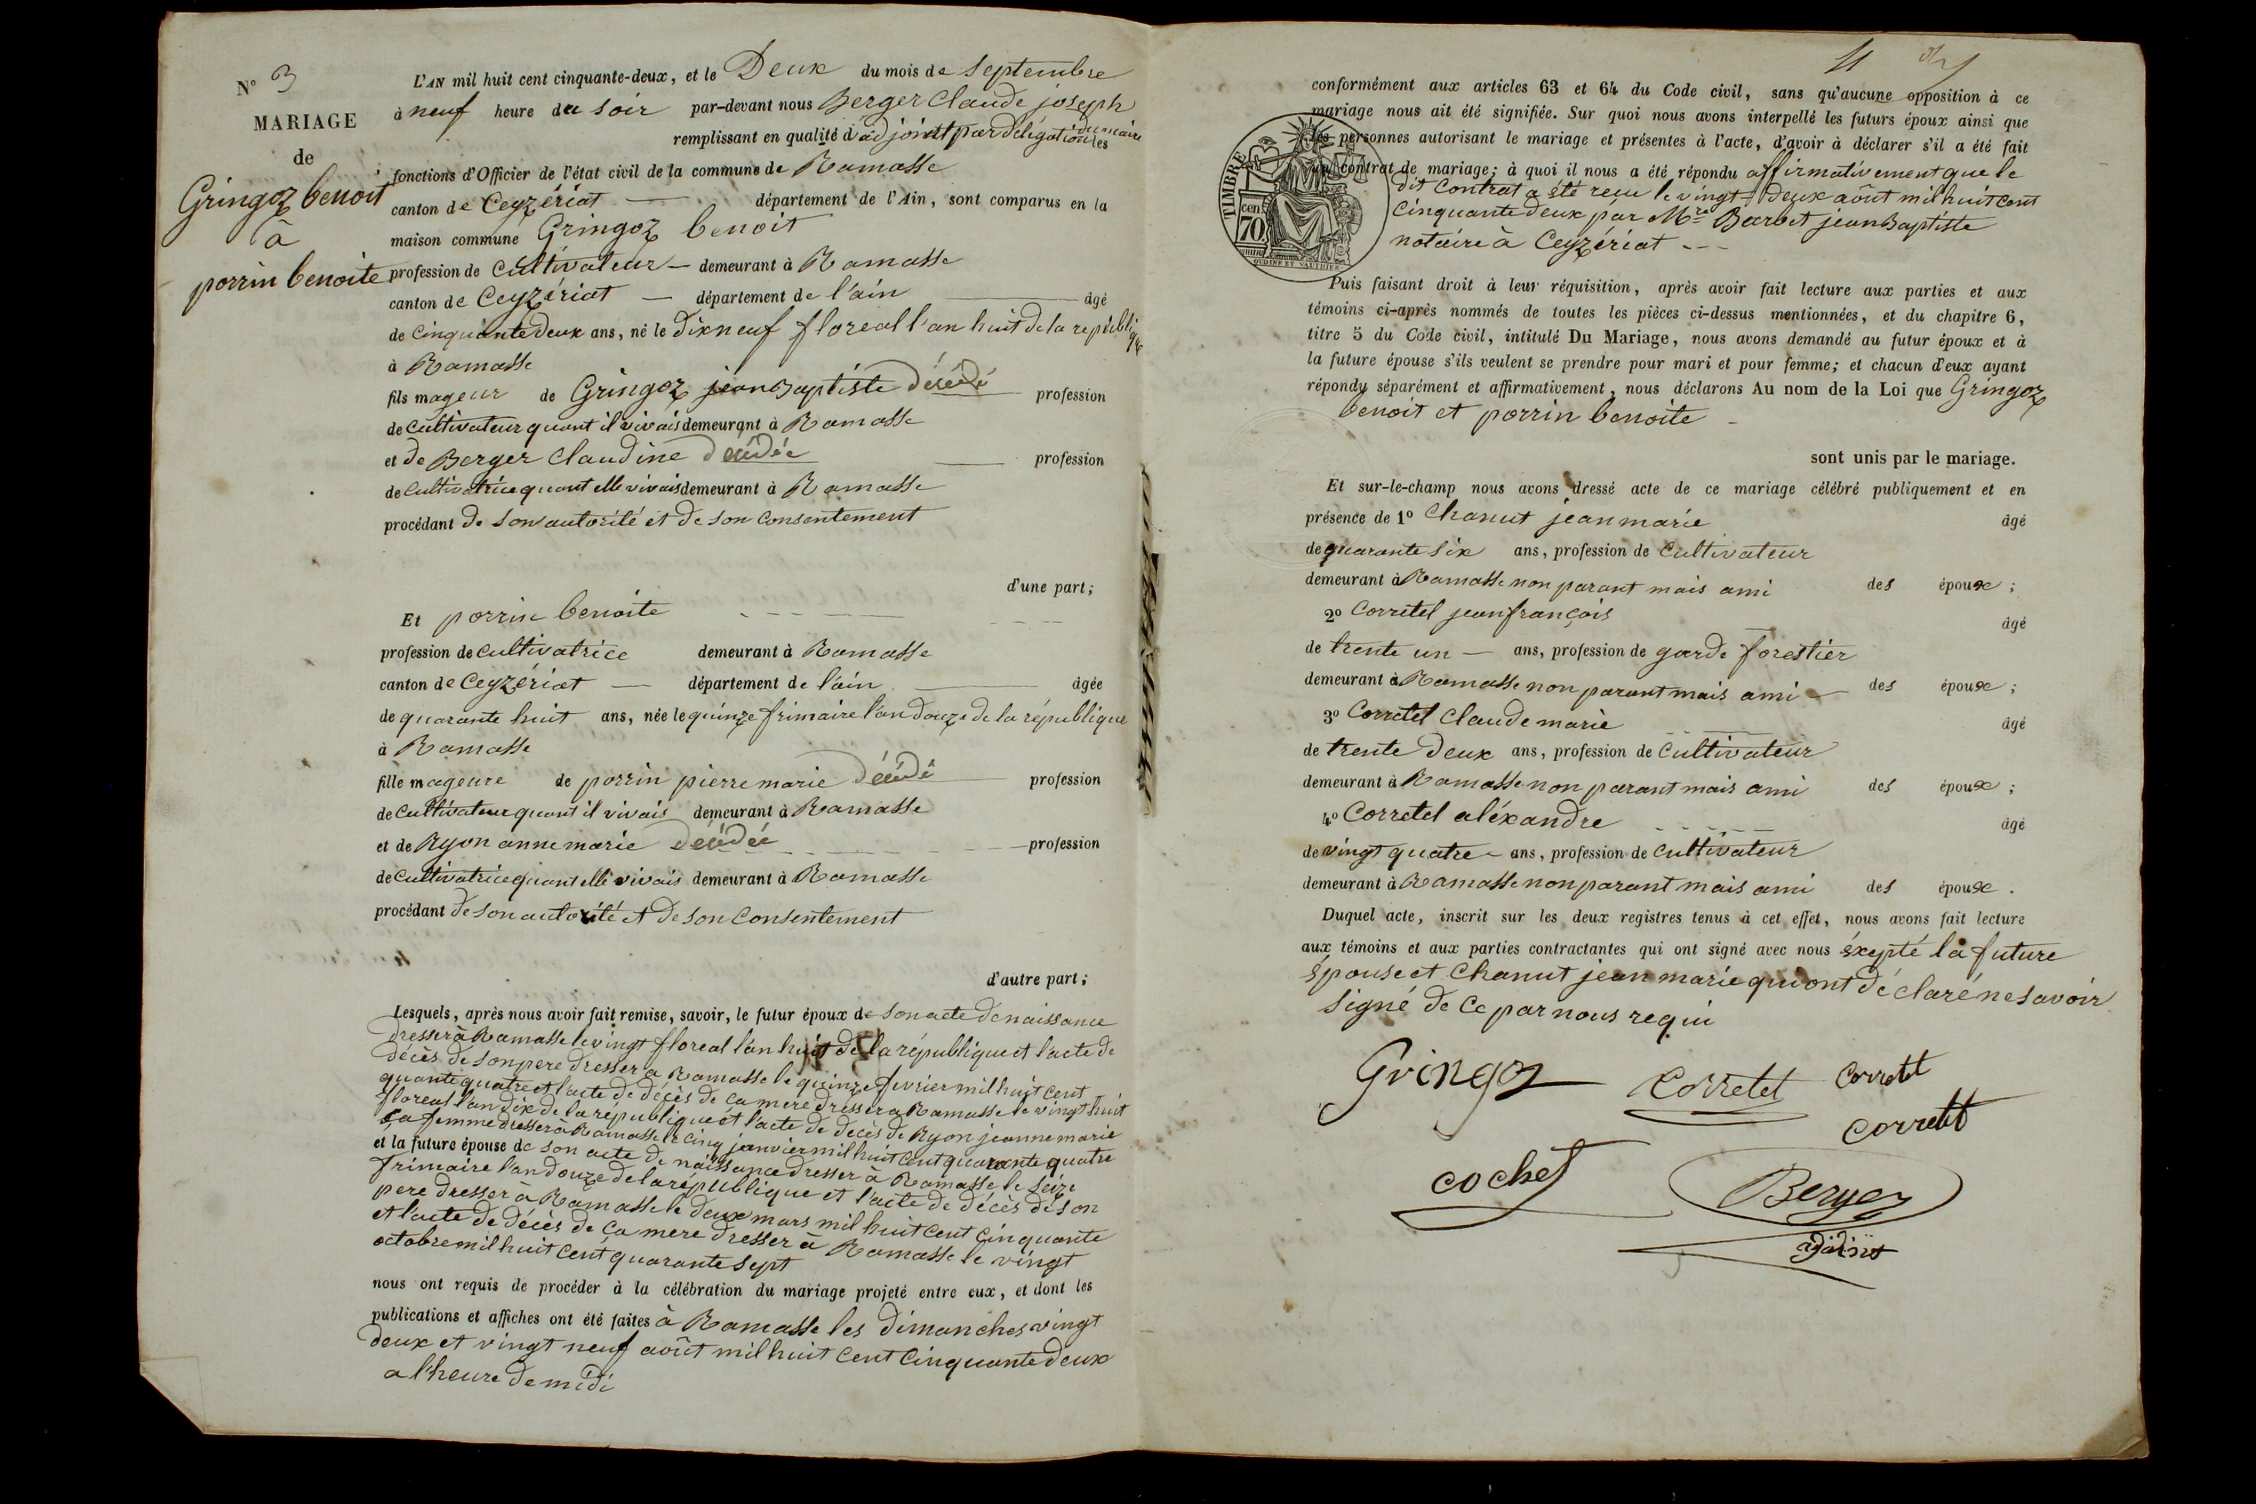 N° 3
MARIAGE
de
Gringoz benoit
à
porrin benoite
L'AN mil huit cent cinquante-deux, et le Deux du mois de septembre
à neuf heure du soir par-devant nous Berger Claude joseph
remplissant en qualité d'adjoint par délégation du maire les
fonctions d'Officier de l'état civil de la commune de Ramasse
canton de Ceyzériat département de l'Ain, sont comparus en la
maison commune Gringoz benoit
profession de cultivateur — demeurant à Ramasse
canton de Ceyzériat — département de l'ain âgé
de cinquante deux ans, né le dixneuf floreal l'an huit de la républiq
que
à Ramasse
fils mageur de Gringoz jean Baptiste décédé profession
de cultivateur quant il vivais demeurant à Ramasse
et de Berger Claudine décédée profession
de cultivatrice quant elle vivais demeurant à Ramasse
procédant de son autorité et de son consentement
d'une part;
Et porrin benoite
profession de cultivatrice demeurant à Ramasse
canton de Ceyzériat — département de l'ain âgée
de quarante huit ans, née le quinze frimaire l'an douze de la république
à Ramasse
fille mageure de porrin pierre marie décédé profession
de cultivateur quant il vivais demeurant à Ramasse
et de Ryon anne marie décédée profession
de cultivatrice quant elle vivais demeurant à Ramasse
procédant de son autorité et de son consentement
d'autre part;
Lesquels, après nous avoir fait remise, savoir, le futur époux de son acte de naissance
dresser à Ramasse le vingt floreal l'an huit de la république et l'acte de
décès de son pere dresser a Ramasse le quinze fevrier mil huit cent
quante quatre et l'acte de décès de ça mere dresser a Ramasse le vingt huit
floreal l'an dix de la république et l'acte de décès de Ryon jeanne marie
sa femme dresser à Ramasse le cinq janvier mil huit cent quarante quatre
et la future épouse de son acte de naissance dresser à Ramasse le seize
frimaire l'an douze de la république et l'acte de décès de son
pere dresser à Ramasse le deux mars mil huit cent cinquante
et l'acte de décès de ça mere dresser à Ramasse le vingt
octobre mil huit cent quarante sept
nous ont requis de procéder à la célébration du mariage projeté entre eux, et dont les
publications et affiches ont été faites à Ramasse les dimanches vingt
deux et vingt neuf août mil huit cent cinquante deux
a l'heure de midi
conformément aux articles 63 et 64 du Code civil, sans qu'aucune opposition à ce
mariage nous ait été signifiée. Sur quoi nous avons interpellé les futurs époux ainsi que
les personnes autorisant le mariage et présentes à l'acte, d'avoir à déclarer s'il a été fait
un contrat de mariage; à quoi il nous a été répondu affirmativement que le
dit contrat a été reçu le vingt-deux août mil huit cent
cinquante deux par Mre Barbet jean Baptiste
notaire à Ceyzériat
TIMBRE
cen
70
OUDINÉ ET VAUTHIER
Puis faisant droit à leur réquisition, après avoir fait lecture aux parties et aux
témoins ci-après nommés de toutes les pièces ci-dessus mentionnées, et du chapitre 6,
titre 5 du Code civil, intitulé Du Mariage, nous avons demandé au futur époux et à
la future épouse s'ils veulent se prendre pour mari et pour femme; et chacun d'eux ayant
répondu séparément et affirmativement, nous déclarons Au nom de la Loi que Gringoz
benoit et porrin benoite
sont unis par le mariage.
Et sur-le-champ nous avons dressé acte de ce mariage célébré publiquement et en
présence de 1° Chanut jean marie âgé
de quarante six ans, profession de cultivateur
demeurant à Ramasse non parant mais ami des époux;
2° Corretel jean françois âgé
de trente un — ans, profession de garde forestier
demeurant à Ramasse non parant mais ami — des époux;
3° Corretel Claude marie âgé
de trente deux ans, profession de cultivateur
demeurant à Ramasse non parant mais ami des époux;
4° Corretel aléxandre âgé
de vingt quatre — ans, profession de cultivateur
demeurant à Ramasse non parant mais ami des époux.
Duquel acte, inscrit sur les deux registres tenus à cet effet, nous avons fait lecture
aux témoins et aux parties contractantes qui ont signé avec nous éxepté la future
épouse et Chanut jean marie qui ont déclaré ne savoir
signé de ce par nous requi
Gringoz
Corretel
Corretel
Corretel
cochet
Berger
adjoint